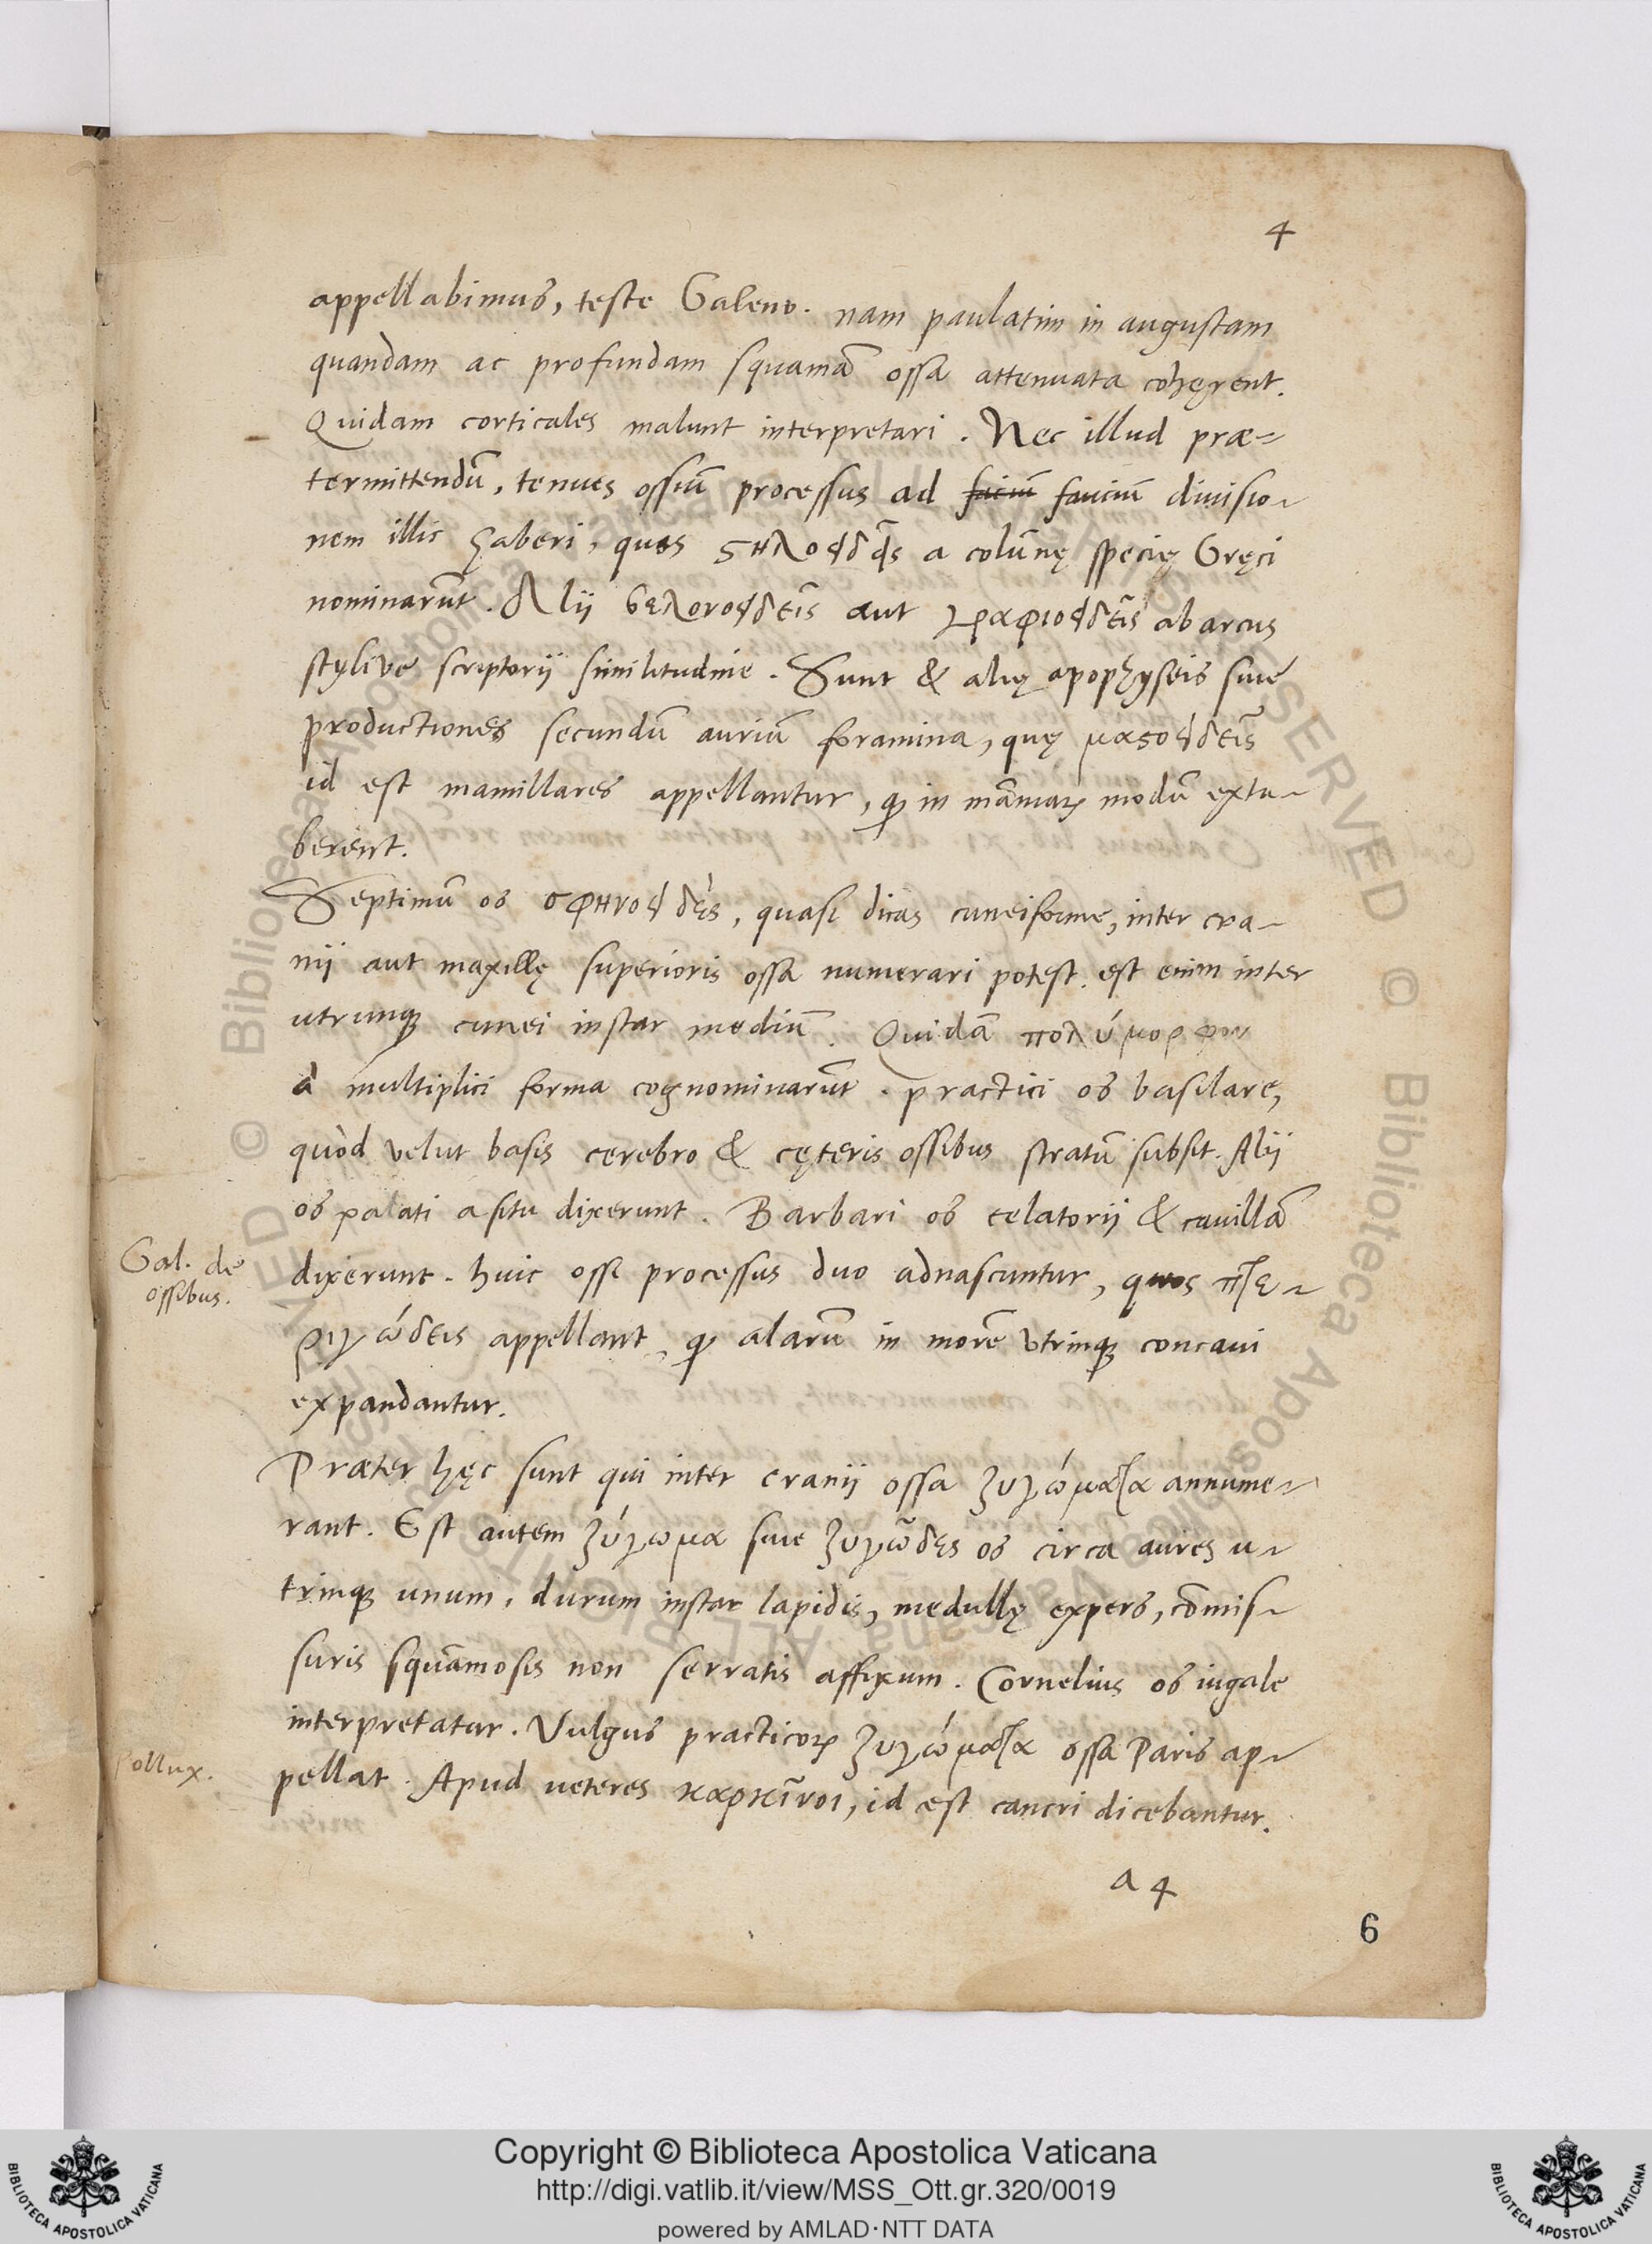 4
appellabimus, teste Galeno. nam paulatim in angustam
quandam ac profundam squamā ossa attenuata cohęrent.
Quidam corticales malunt interpretari. Nec illud præ-
termittendū, tenues ossiū processus ad faciū fauciū diuisio-
nem illic haberi, quos ϛηλοειδεῖς a colūnę specię Gręci
nominarūt. Alii βελονοειδεῖς aut γραφιοειδεῖς ab arcus
stylive scriptorii similitudine. Sunt & alię apophyseis siue
productiones secundū auriū foramina, quę μαϛοειδεῖς
id est mamillares appellantur, ꝙ in māmaꝝ modū extu-
berent.
Septimū os σφηνοειδὲς, quasi dicas cuneiforme, inter cra-
nii aut maxillę superioris ossa numerari potest. est enim inter
utrunqꝫ cunei instar mediū. Quidā πολύμορφον
à multiplici forma cognominarūt. practici os basilare,
quòd velut basis cerebro & cęteris ossibus stratū subsit. Alii
os palati a situ dixerunt. Barbari os celatorii & cauillā
Gal. de
ossibus.
dixerunt. huic ossi processus duo adnascuntur, quos πτε-
ρυγώδεις appellant, ꝙ alarū in morē vtrinqꝫ concaui
expandantur.
Præter hęc sunt qui inter cranii ossa ζυγώματα annume-
rant. Est autem ζύγωμα siue ζυγῶδες os circa aures u-
trinqꝫ unum, durum instar lapidis, medullę expers, cōmis-
suris squamosis non serratis affixum. Cornelius os iugale
interpretatur. Vulgus practicoꝝ ζυγώματα ossa Paris ap-
Pollux.
pellat. Apud ueteres καρκῖνοι, id est cancri dicebantur.
a 4
6
Copyright © Biblioteca Apostolica Vaticana
http://digi.vatlib.it/view/MSS_Ott.gr.320/0019
powered by AMLAD·NTT DATA